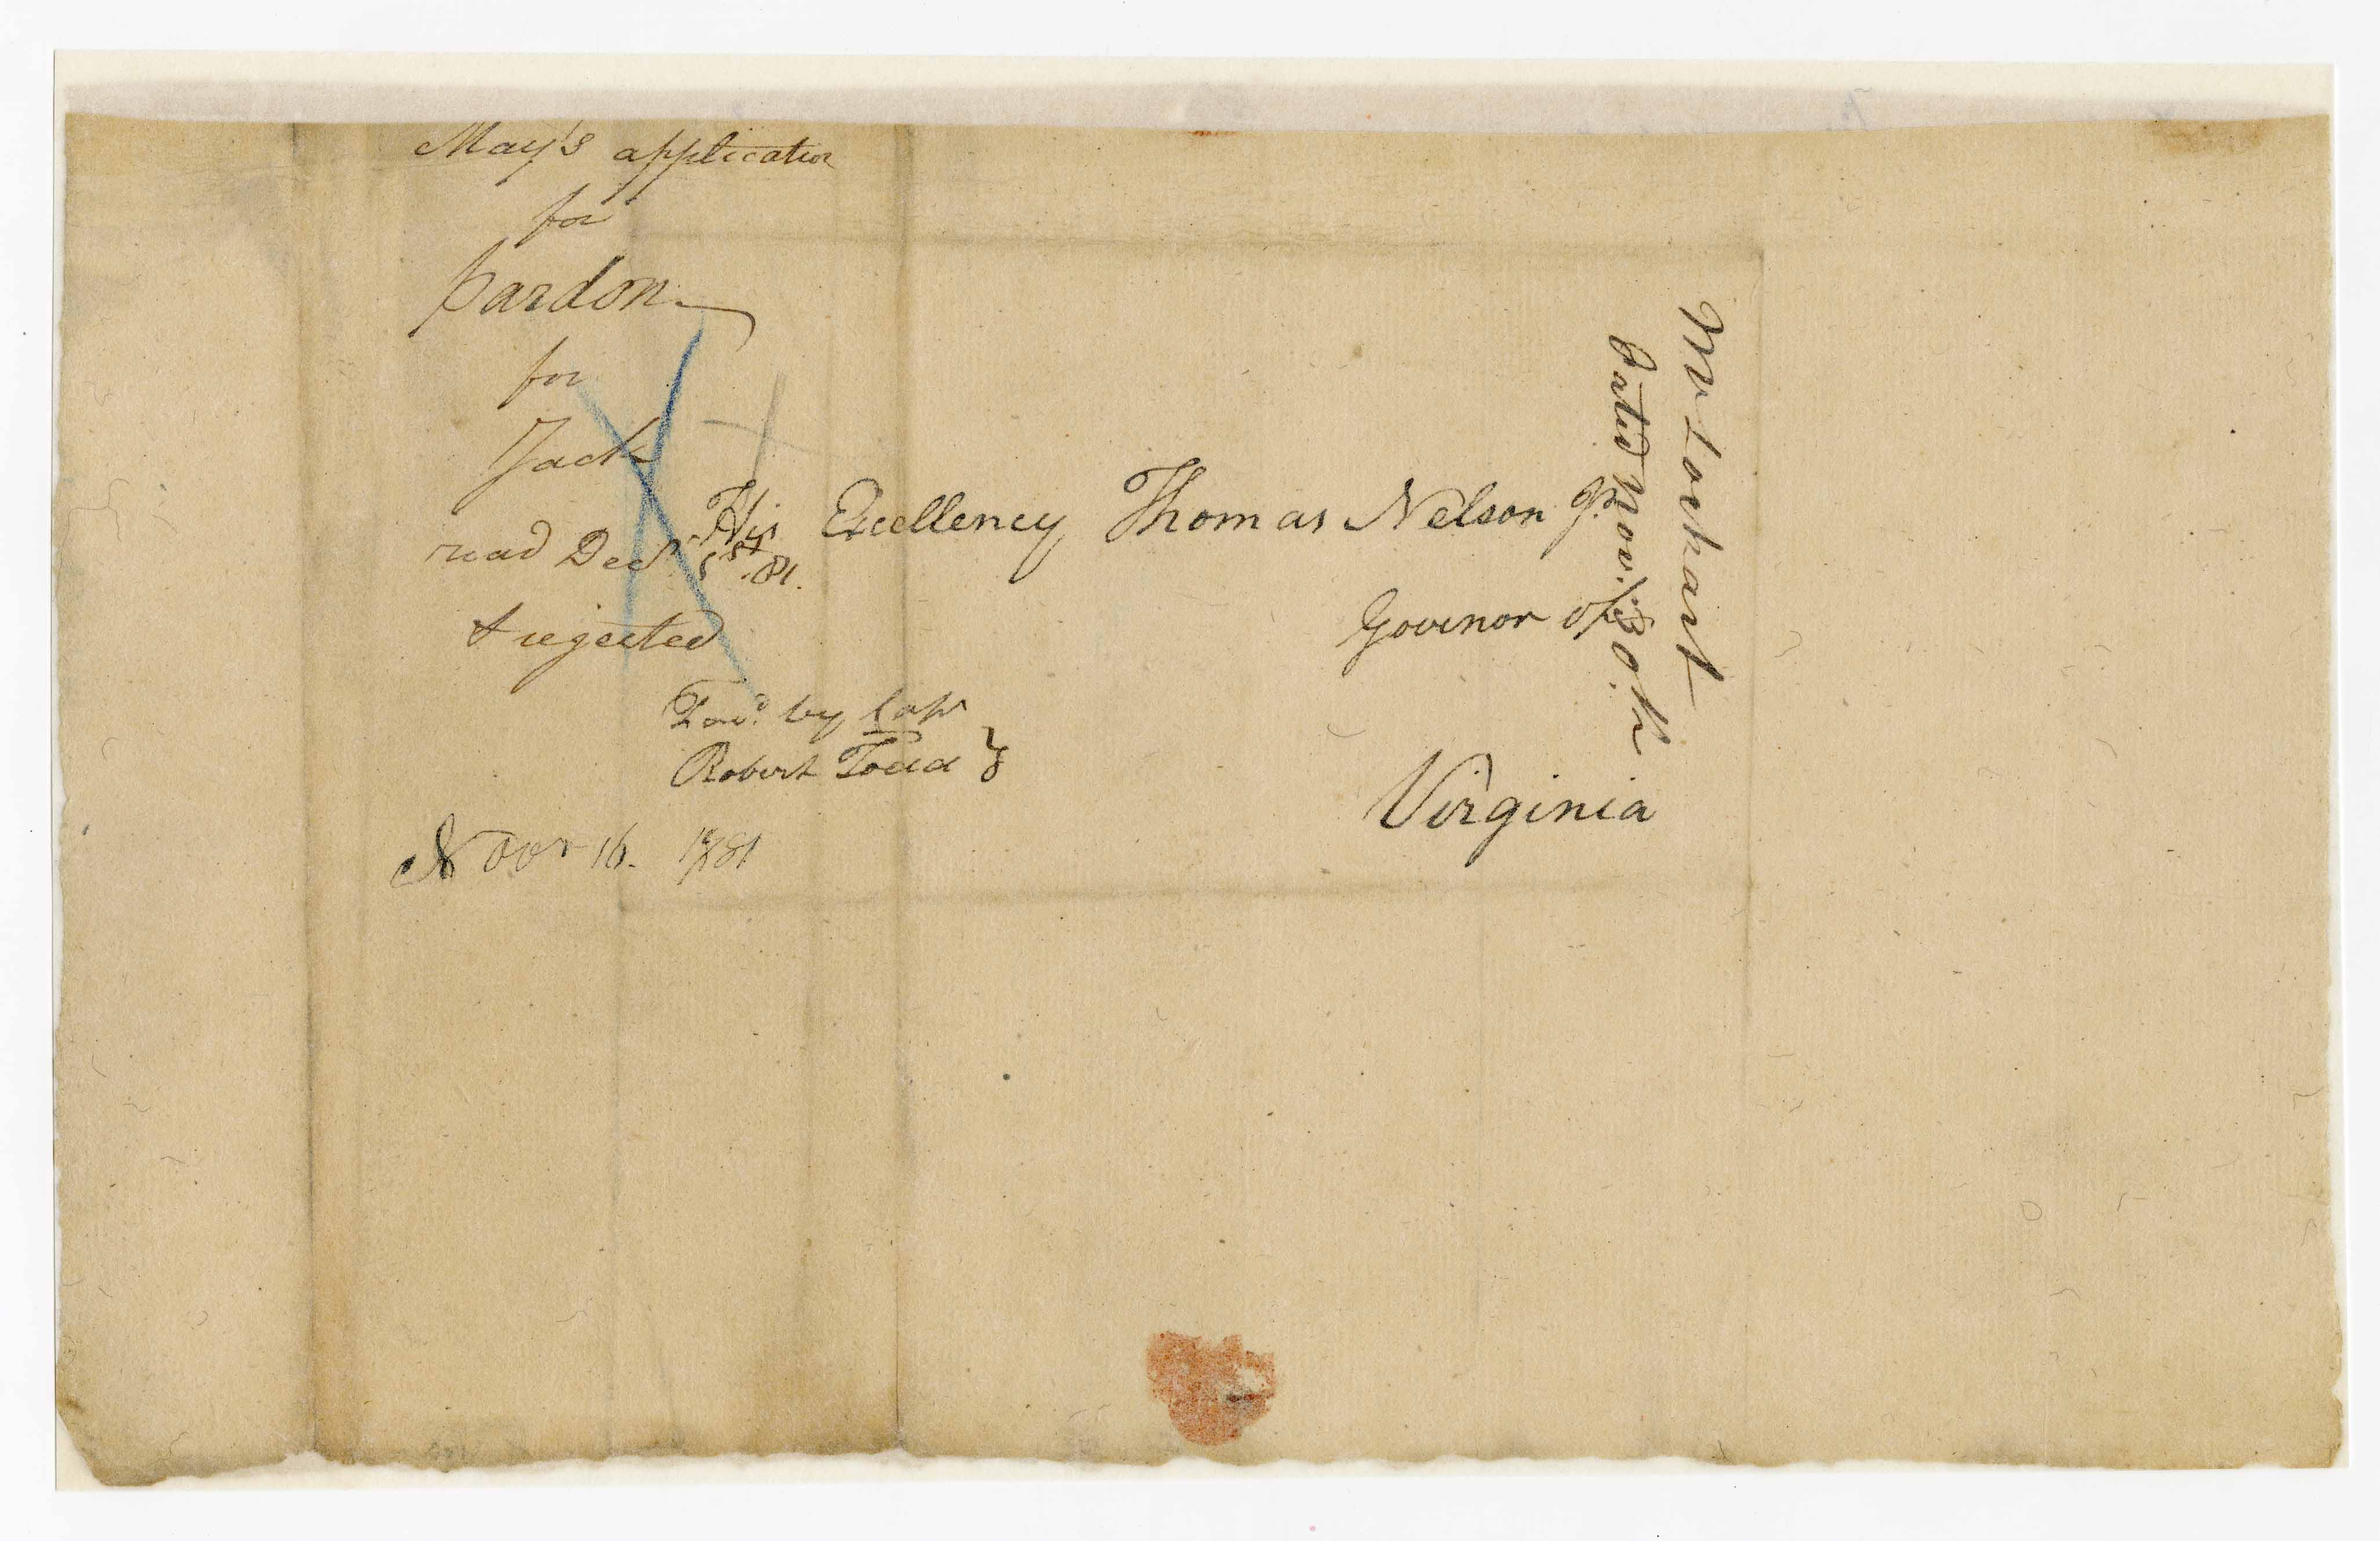 May's application
for
pardon
for
Jack
read Decr. 1st. 81.
& rejected
His Excellency Thomas Nelson Jr.
Govenor of
Virginia
Favd. by Capt
Robert Todd
Novr 16. 1781
Mr Lockart
Dated Nov.